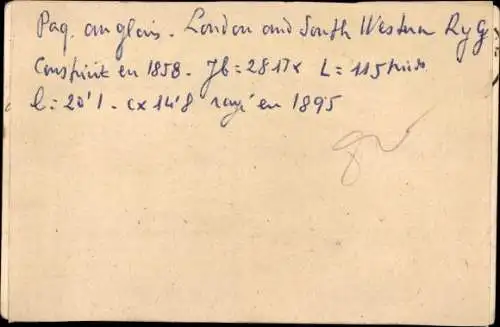 Paq. anglais. London and South Western Ry
Construit en 1858. Jb = 281 Tx L = 115 pieds
l = 20'1 - cx 14'8 rayé en 1895